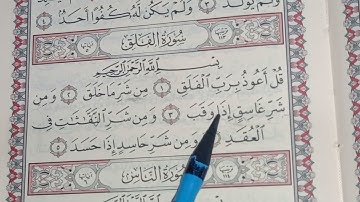 يُولَدْ ٣ وَلَمْ يَكُن لَّهُ كُفُوًا أَحَدٌ ٤
سُورَةُ الْفَلَقِ
بِسْمِ اللَّهِ الرَّحْمَٰنِ الرَّحِيمِ
قُلْ أَعُوذُ بِرَبِّ الْفَلَقِ ١ مِن شَرِّ مَا خَلَقَ ٢ وَمِن
شَرِّ غَاسِقٍ إِذَا وَقَبَ ٣ وَمِن شَرِّ النَّفَّاثَاتِ فِي
الْعُقَدِ ٤ وَمِن شَرِّ حَاسِدٍ إِذَا حَسَدَ ٥
سُورَةُ النَّاسِ